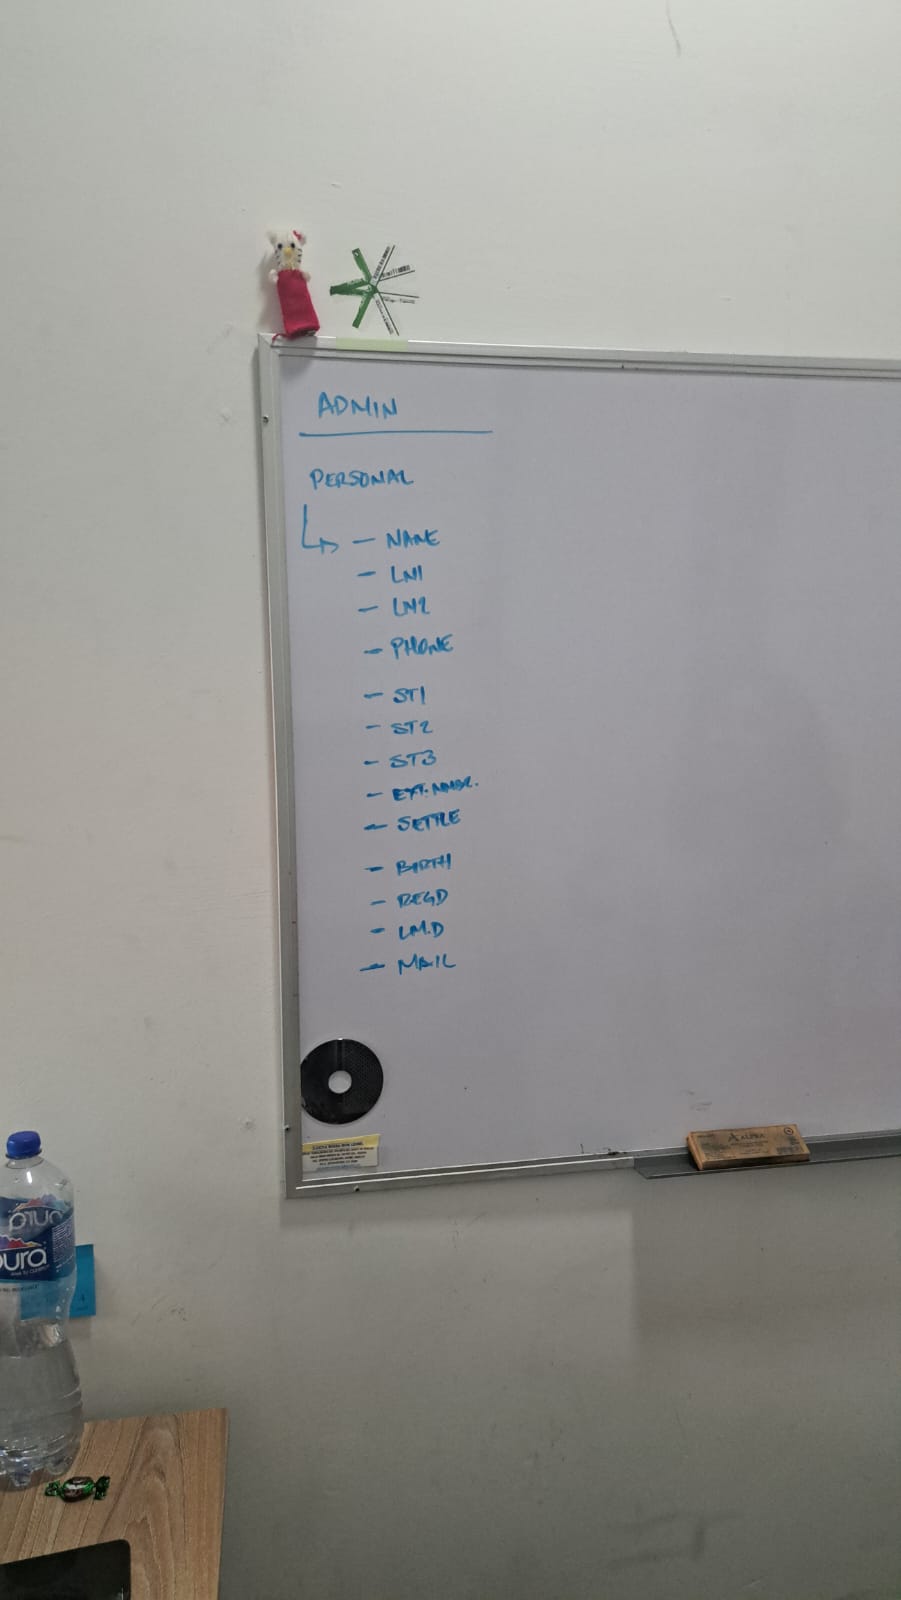 ADMIN
PERSONAL
- NAME
- LN1
- LN2
- PHONE
- ST1
- ST2
- ST3
- EXT. NMBR.
- SETTLE
- BIRTH
- REGD
- LM.D
- MAIL
ALPRA
pura